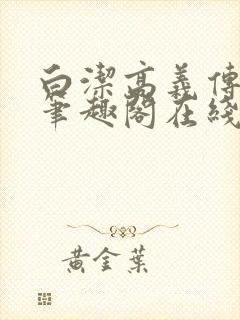 白潔高義傳
筆趣閣在綫
黃金葉